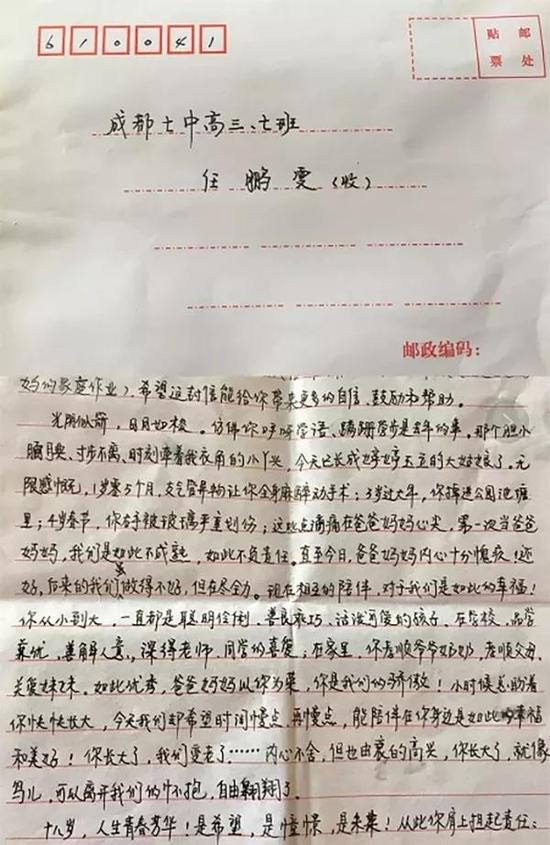 610041
贴 邮
票 处
成都七中高三、七班
任鹏雯(收)
邮政编码:
妈的家庭作业)、希望这封信能给你带来更多的自信、鼓励和帮助。
光阴似箭,日月如梭。仿佛你呀呀学语、蹒跚学步是去年的事。那个胆小
腼腆、寸步不离、时刻牵着我衣角的小丫头,今天已长成婷婷玉立的大姑娘了。无
限感慨,1岁零5个月,支气管异物让你全身麻醉动手术;3岁过大年,你掉进公园池塘
里;4岁春节,你右手被玻璃严重划伤;这些点滴痛在爸爸妈妈心尖,第一次当爸爸
妈妈,我们是如此不成熟,如此不负责任。直至今日,爸爸妈妈内心十分愧疚!还
好,后来的我们做得不好,但在尽全力。现在相互的陪伴,对于我们是如此的幸福!
你从小到大,一直都是聪明伶俐、善良乖巧、活泼可爱的孩子。在学校,品学
兼优,善解人意,深得老师、同学的喜爱;在家里,你孝顺爷爷奶奶,孝顺父母,
关爱妹妹。如此优秀,爸爸妈妈以你为荣,你是我们的骄傲!小时候总盼着
你快快长大,今天我们却希望时间慢点再慢点,能陪伴在你身边是如此幸福
和美好!你长大了,我们变老了……内心不舍,但也由衷的高兴,你长大了,就像
鸟儿,可以离开我们的怀抱,自由翱翔了。
十八岁,人生青春芳华!是希望,是憧憬,是未来!从此你肩上担起责任: